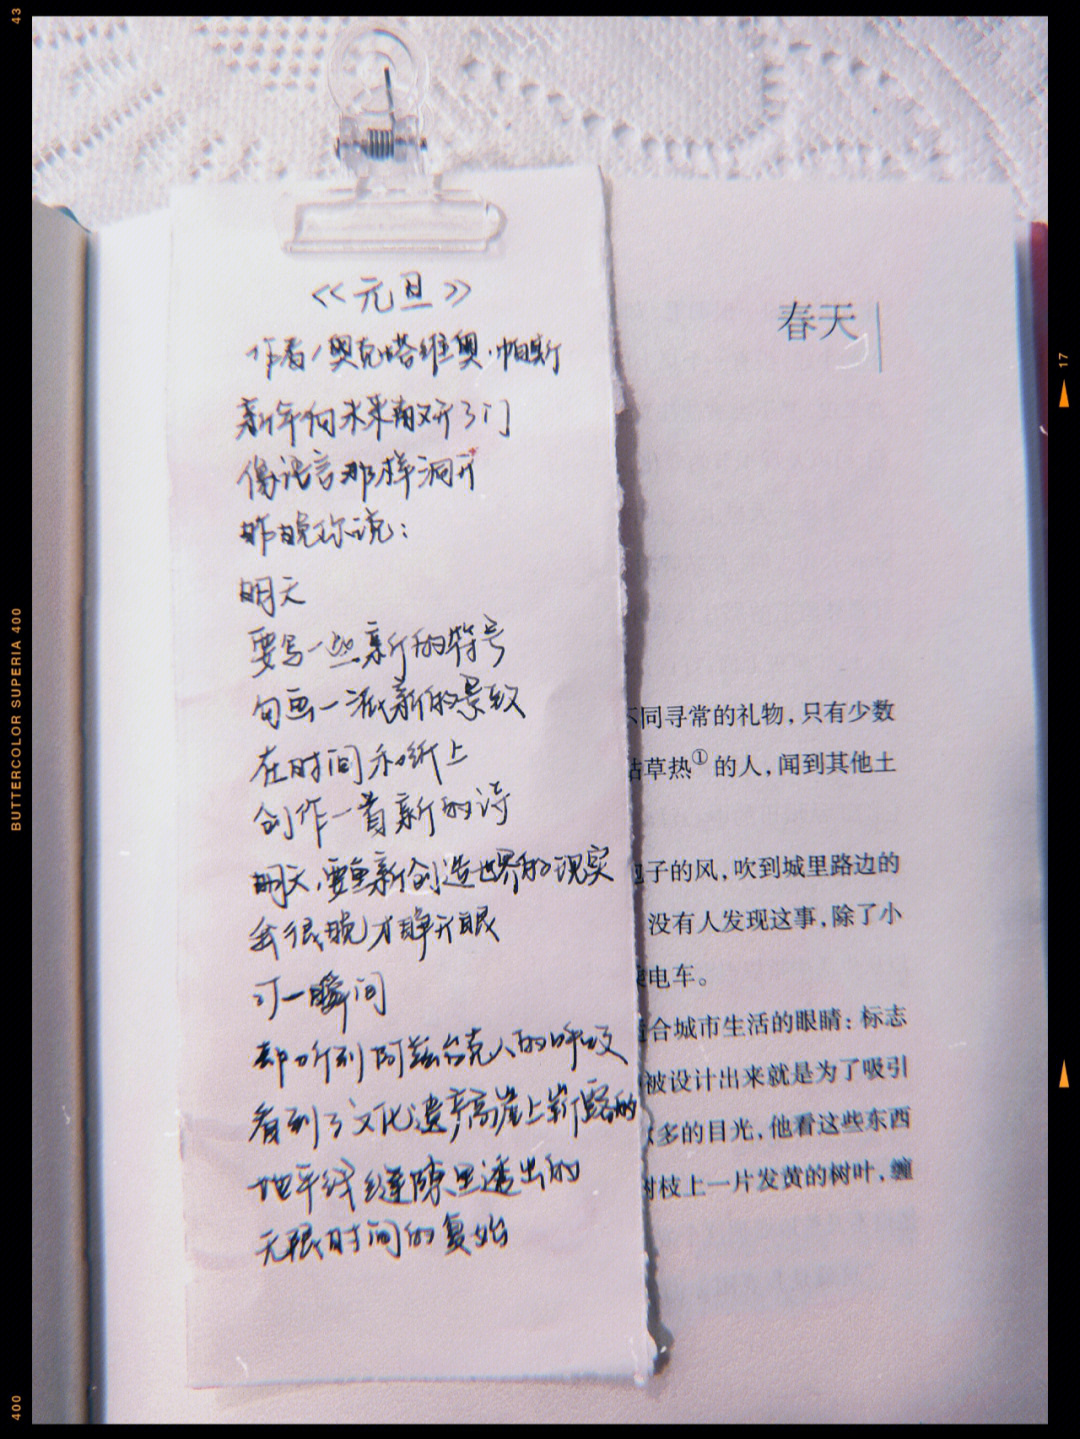 43
BUTTERCOLOR SUPERIA 400
400
17
《元旦》
作者/奥克塔维奥·帕斯
新年向未来敞开了门
像语言那样洞开
昨晚你说：
明天
要写一些新的符号
勾画一派新的景致
在时间和纸上
创作一首新的诗
明天，要重新创造世界的现实
我很晚才睁开眼
可一瞬间
却听到阿兹台克人的呼吸
看到了文化遗产高崖上崭露的
地平线缝隙里透出的
无限时间的复始
春天
不同寻常的礼物，只有少数
草热① 的人，闻到其他土
子的风，吹到城里路边的
没有人发现这事，除了小
电车。
合城市生活的眼睛：标志
被设计出来就是为了吸引
多的目光，他看这些东西
树枝上一片发黄的树叶，缠